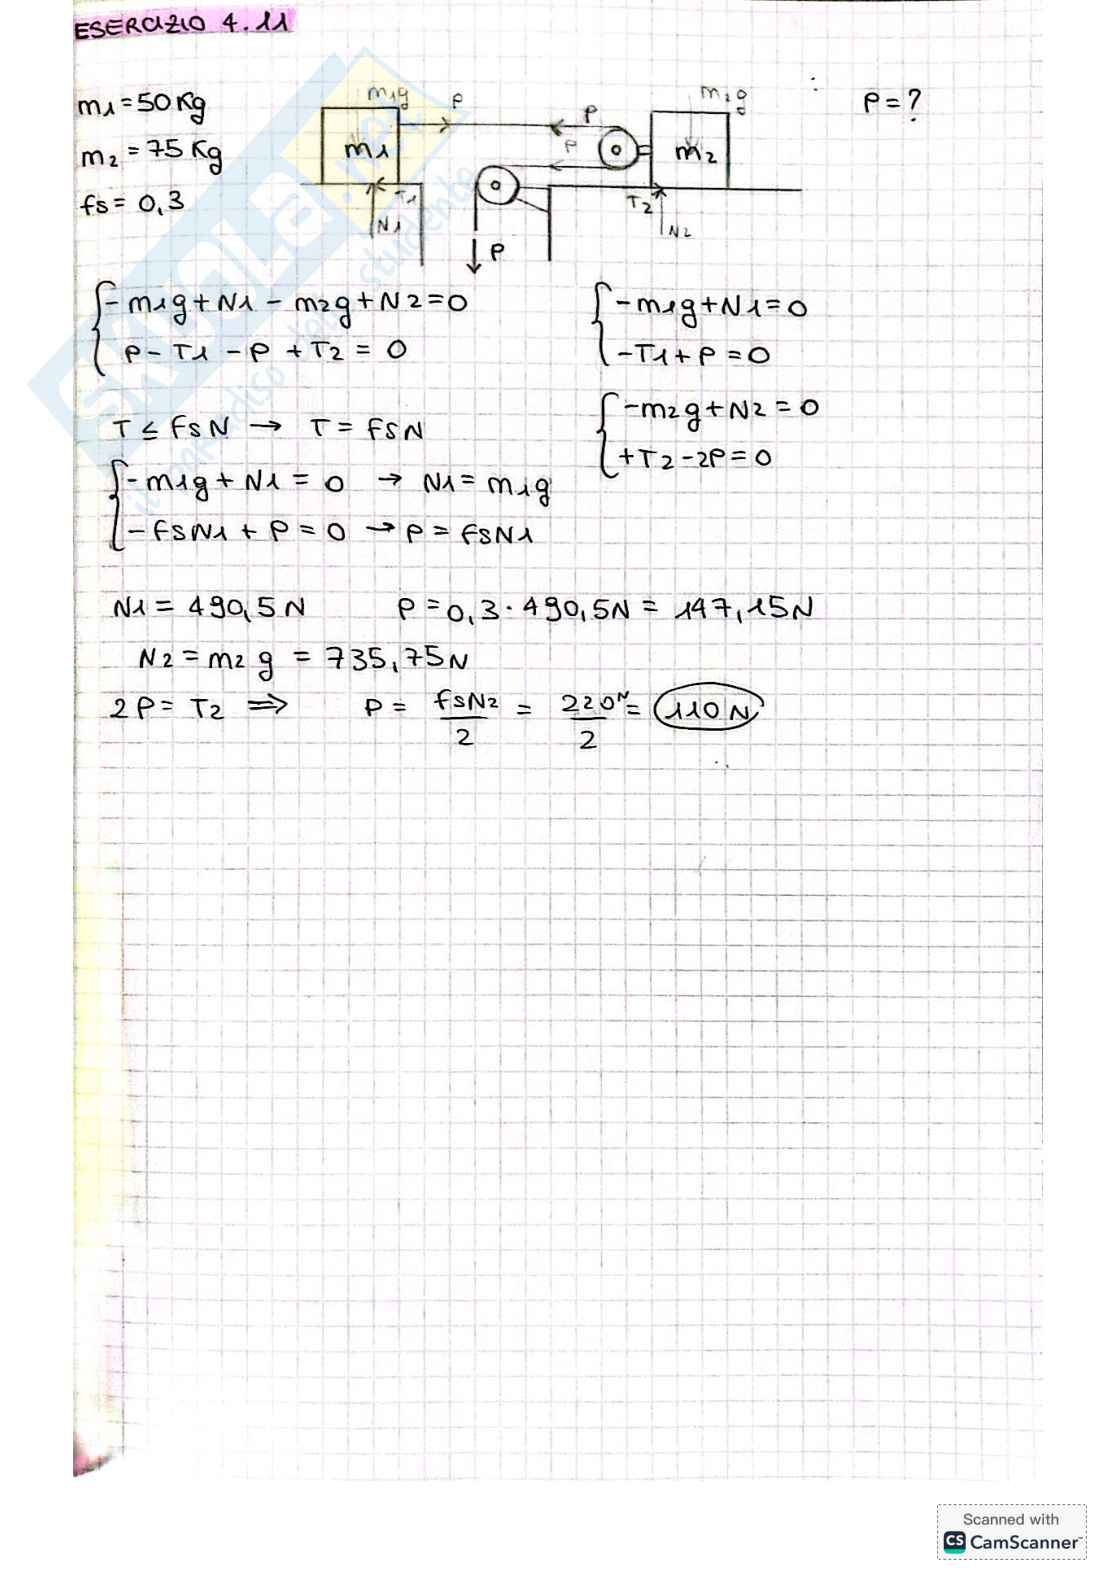 ESERCIZIO 4.11
m1 = 50 Kg
m2 = 75 Kg
fs = 0,3
P = ?
m1g P
m1
T1
N1
P
P
P
m2g
m2
T2
N2
{ -m1g + N1 - m2g + N2 = 0
P - T1 - P + T2 = 0
{ -m1g + N1 = 0
-T1 + P = 0
{ -m2g + N2 = 0
+T2 - 2P = 0
T ≤ fsN → T = fsN
{ -m1g + N1 = 0 → N1 = m1g
-fsN1 + P = 0 → P = fsN1
N1 = 490,5 N P = 0,3 · 490,5N = 147,15N
N2 = m2 g = 735,75N
2P = T2 ⇒ P = fsN2/2 = 220N/2 = 110 N
SKUOLA.net
il paradiso dello studente
Scanned with
CS CamScanner